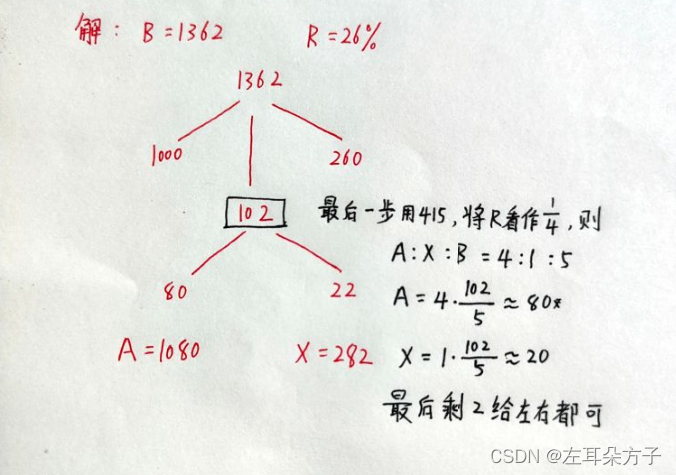 解： B=1362 R=26%
1362
1000 260
102
最后一步用415，将R看作1/4，则
A:X:B=4:1:5
80 22
A=4·102/5≈80*
A=1080 X=282
X=1·102/5≈20
最后剩2给左右都可
CSDN @左耳朵方子